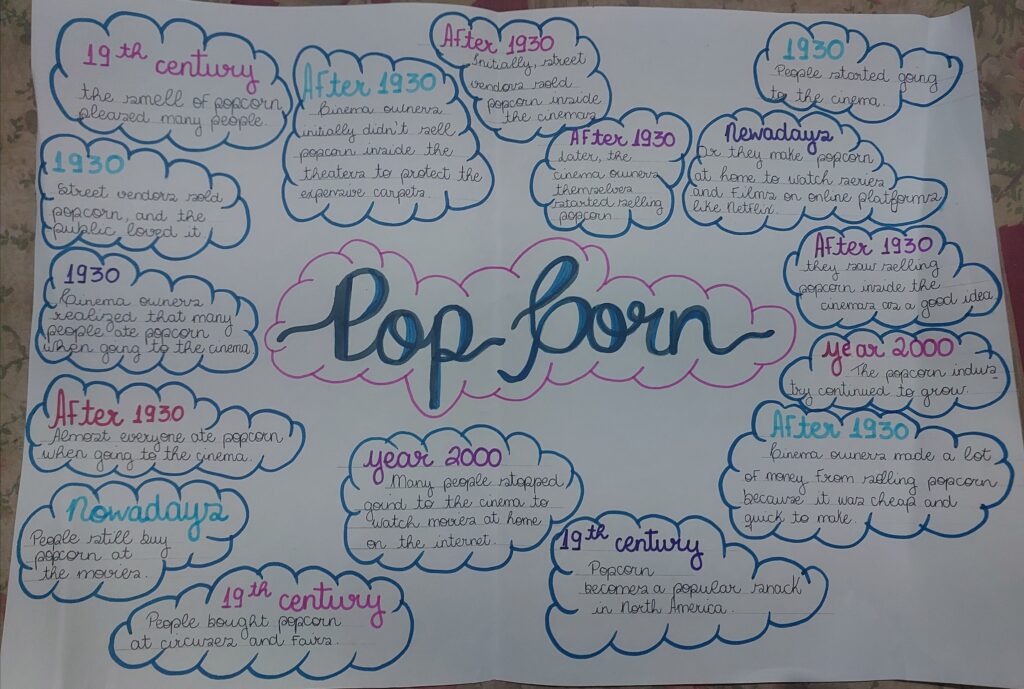 19th century
the smell of popcorn
pleased many people.
After 1930
Cinema owners
initially didn't sell
popcorn inside the
theaters to protect the
expensive carpets.
After 1930
Initially, street
vendors sold
popcorn inside
the cinemas
1930
People started going
to the cinema.
After 1930
Later, the
cinema owners
themselves
started selling
popcorn.
Newadays
Or they make popcorn
at home to watch series
and Films on online platforms
like Netflix.
1930
Street vendors sold
popcorn, and the
public loved it.
1930
Cinema owners
realized that many
people ate popcorn
when going to the cinema.
Pop Corn
After 1930
they saw selling
popcorn inside the
cinemas as a good idea
year 2000
The popcorn indus-
try continued to grow.
After 1930
Almost everyone ate popcorn
when going to the cinema.
After 1930
Cinema owners made a lot
of money from selling popcorn
because it was cheap and
quick to make.
year 2000
Many people stopped
goind to the cinema to
watch movies at home
on the internet.
Nowadays
People still buy
popcorn at
the movies.
19th century
Popcorn
becomes a popular snack
in North America.
19th century
People bought popcorn
at circuses and Fairs.